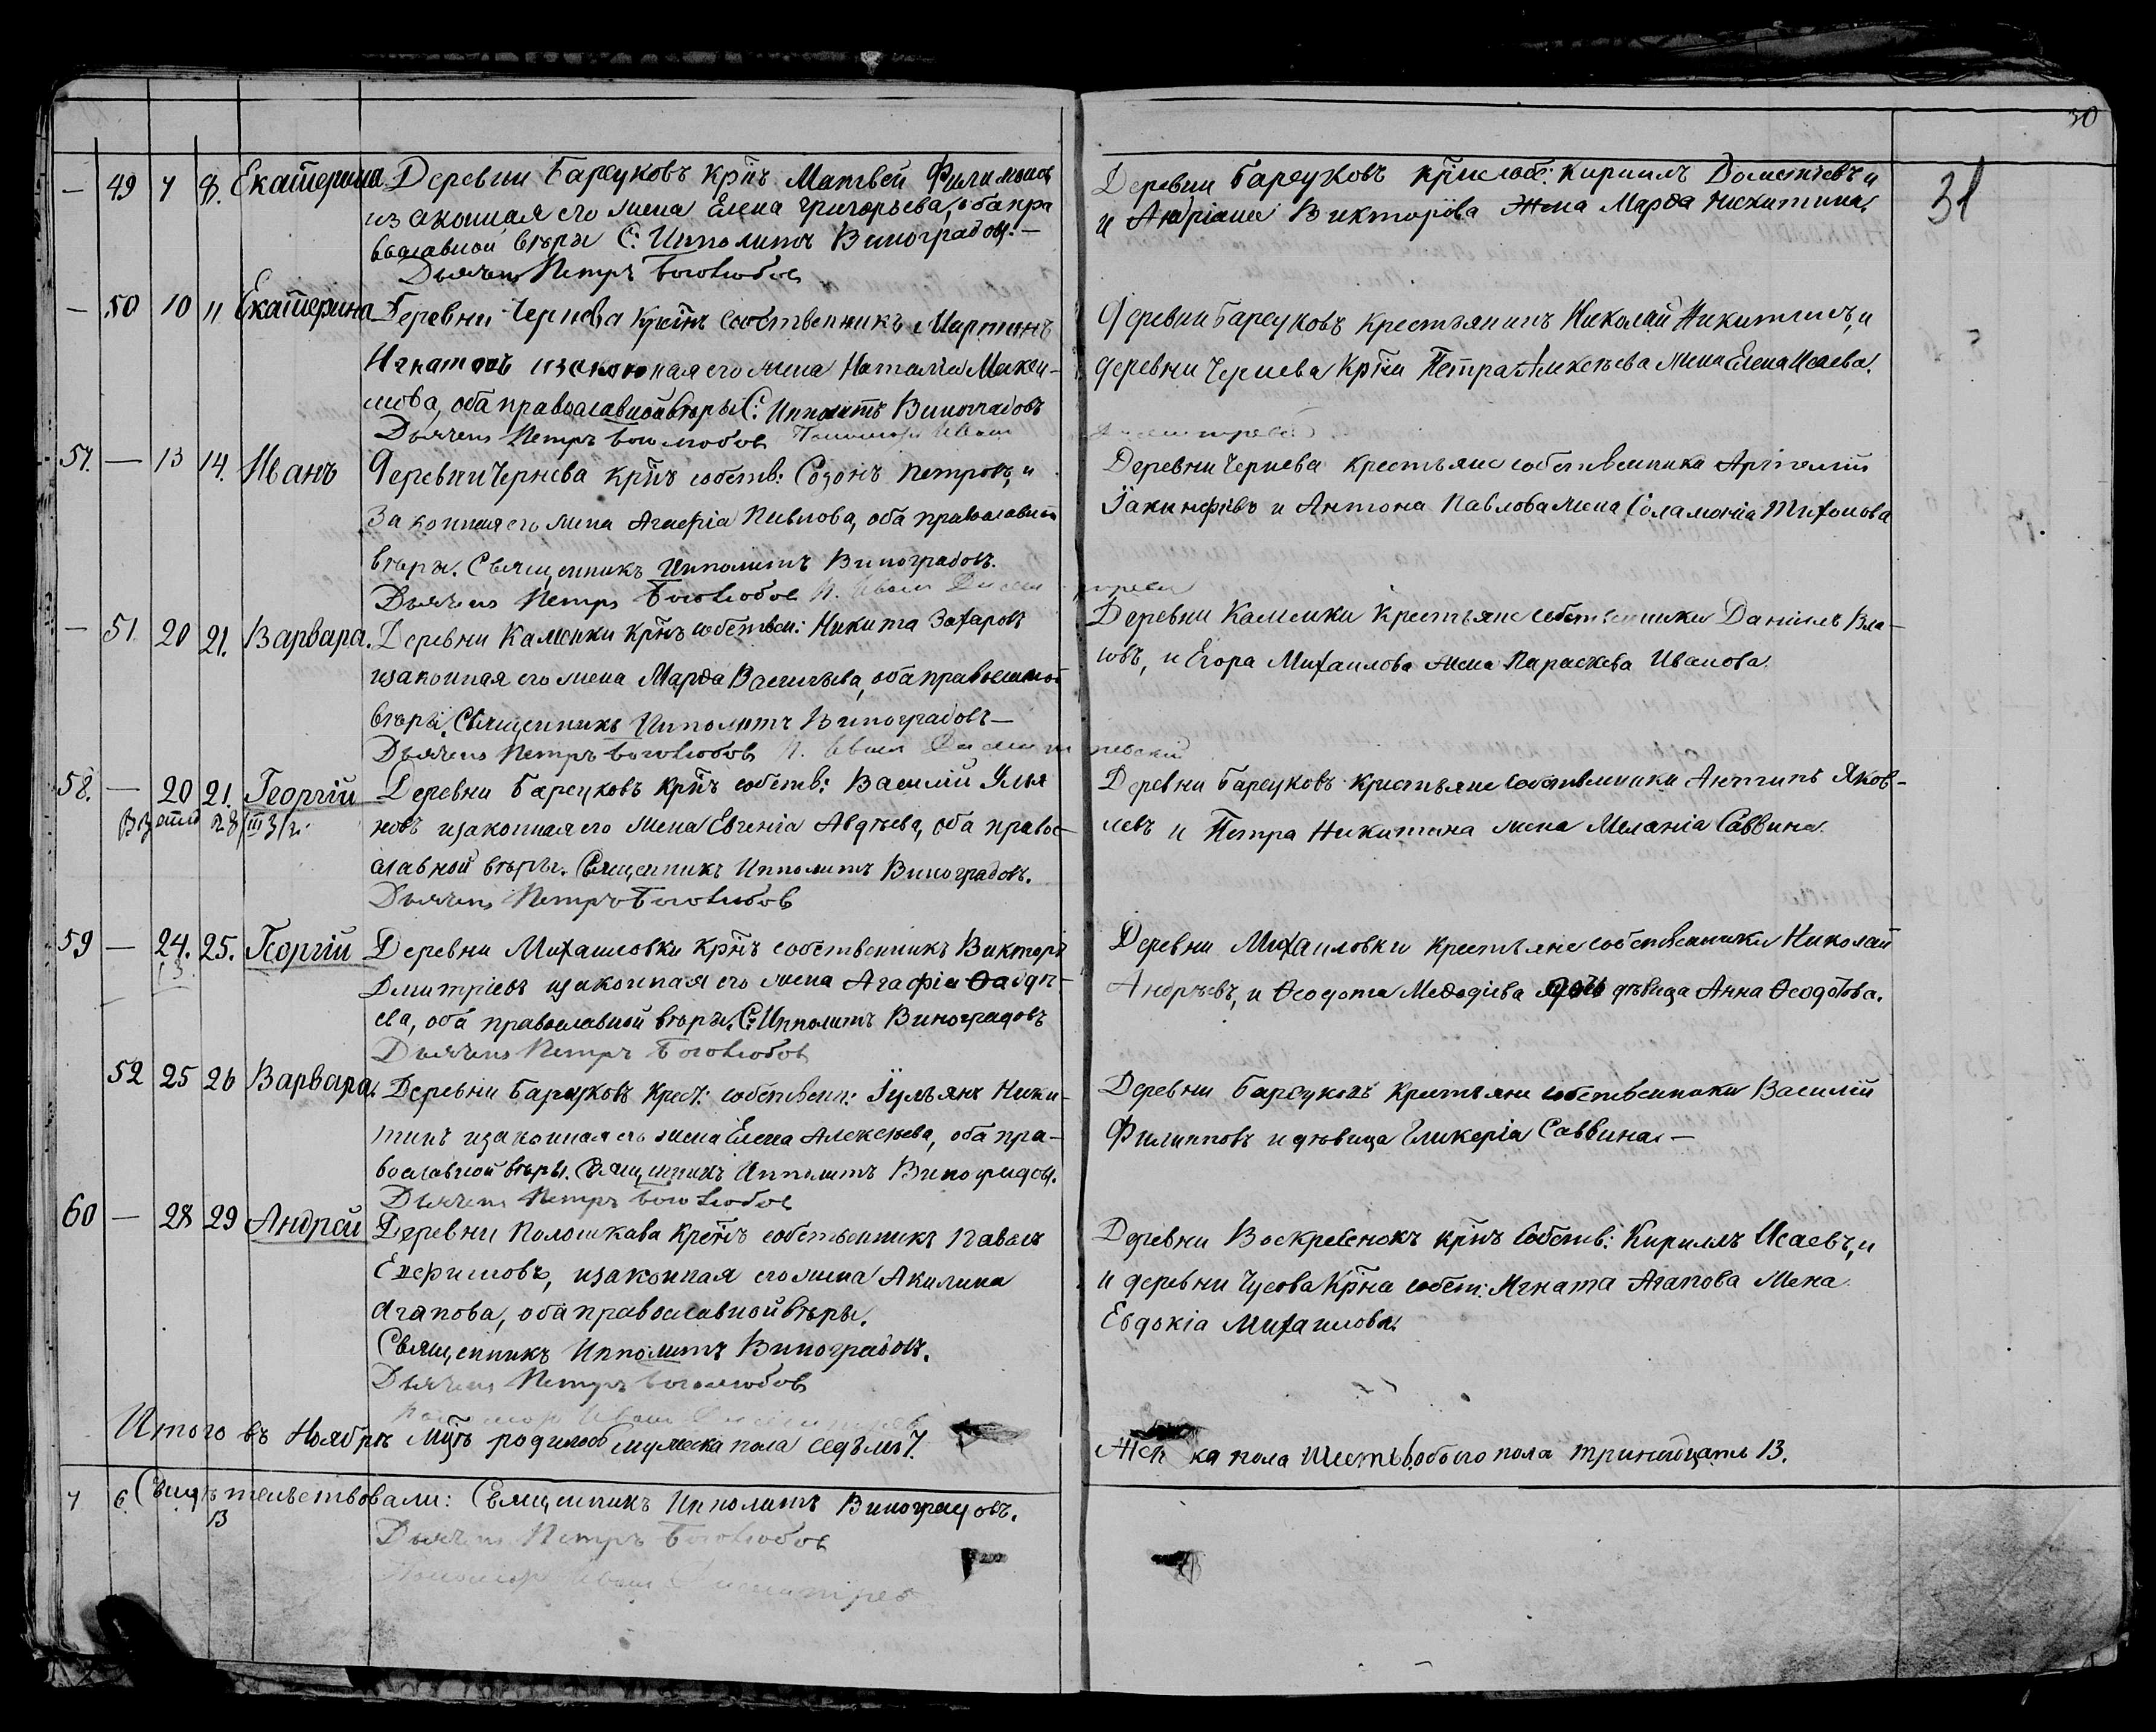 30
31
— 49 7 8. Екатерина Деревни Барсуковъ кр꙯нъ Матвей Филимоновъ
изаконная его жена Елена Григорьева, оба пра
вославной вѣры С: Ипполитъ Виноградовъ. —
Дьячекъ Петръ Боголюбовъ
Деревни Барсуковъ кр꙯не соб: Кириллъ Дометіевъ и
и Андріана Викторова жена Марѳа Никитина.
— 50 10 11 Екатерина Деревни Чернева Крест꙯нъ собственникъ Мартинъ
Игнатовъ изаконная его жена Наталія Макси-
мова, оба православной вѣры С: Ипполитъ Виноградовъ
Дьячекъ Петръ Боголюбовъ Пономарь Иванъ Димитревъ
Деревни Барсуковъ крестьянинъ Николай Никитинъ, и
деревни Чернева Кр꙯на Петра Алексѣева жена Елена Исаева.
57. — 13 14. Иванъ Деревни Чернева кр꙯нъ собств: Созонъ Петровъ, и
законная его жена Агафія Павлова, оба православной
вѣры. Священникъ Ипполитъ Виноградовъ.
Дьячекъ Петръ Боголюбовъ П. Иванъ Димитревъ
Деревни Чернева крестьяне собственники Артемій
Іакинфовъ и Антона Павлова жена Соломонія Тихонова
— 51 20 21. Варвара. Деревни Каменки кр꙯нъ собствен: Никита Захаровъ
изаконная его жена Марѳа Васильева, оба православной
вѣры. Священникъ Ипполитъ Виноградовъ —
Дьячекъ Петръ Боголюбовъ П. Иванъ
Деревни Каменки крестьяне собственники Даніилъ Вла-
совъ, и Егора Михаилова жена Параскева Иванова.
58. — 20 21. Георгій Деревни Барсуковъ кр꙯нъ собств: Василій Улья
новъ изаконная его жена Евгенія Авдѣева, оба правос-
лавной вѣры. Священникъ Ипполитъ Виноградовъ.
Дьячекъ Петръ Боголюбовъ
Деревни Барсуковъ крестьяне собственники Антипъ Яков-
левъ и Петра Никитина жена Меланія Саввина.
59 — 24. 25. Георгій Деревни Михаиловки кр꙯нъ собственникъ Викторъ
Дмитріевъ изаконная его жена Агафія Ѳадде-
ева, оба православной вѣры. С: Ипполитъ Виноградовъ
Дьячекъ Петръ Боголюбовъ
Деревни Михаиловки крестьяне собственники Николай
Андреевъ, и Ѳеодота Меѳодіева дочь дѣвица Анна Ѳеодотова.
52 25 26 Варвара. Деревни Барсуковъ Крест: собствен: Іульянъ Ники-
тинъ изаконная его жена Елена Алексѣева, оба пра-
вославной вѣры. Священникъ Ипполитъ Виноградовъ.
Дьячекъ Петръ Боголюбовъ
Деревни Барсуковъ Крестьяне собственники Василій
Филипповъ и дѣвица Гликерія Саввина. —
60 — 28 29 Андрей Деревни Полошкава Крест꙯нъ собственникъ Павелъ
Ефимовъ, изаконная его жена Акилина
Агапова, оба православной вѣры.
Священникъ Ипполитъ Виноградовъ.
Дьячекъ Петръ Боголюбовъ
Пономарь Иванъ Димитревъ
Деревни Воскресенокъ кр꙯нъ собств: Кириллъ Исаевъ, и
и деревни Чусова Кр꙯на собст: Игната Агапова жена
Евдокія Михаилова.
Итого въ Ноябрѣ мц꙯ѣ родилось мужеска пола седьмь 7.
Жен ка пола шесть 6. обоего пола тринадцать 13.
7 6 13
Свидѣтельствовали: Священникъ Ипполитъ Виноградовъ.
Дьячекъ Петръ Боголюбовъ
Пономарь Иванъ Димитревъ